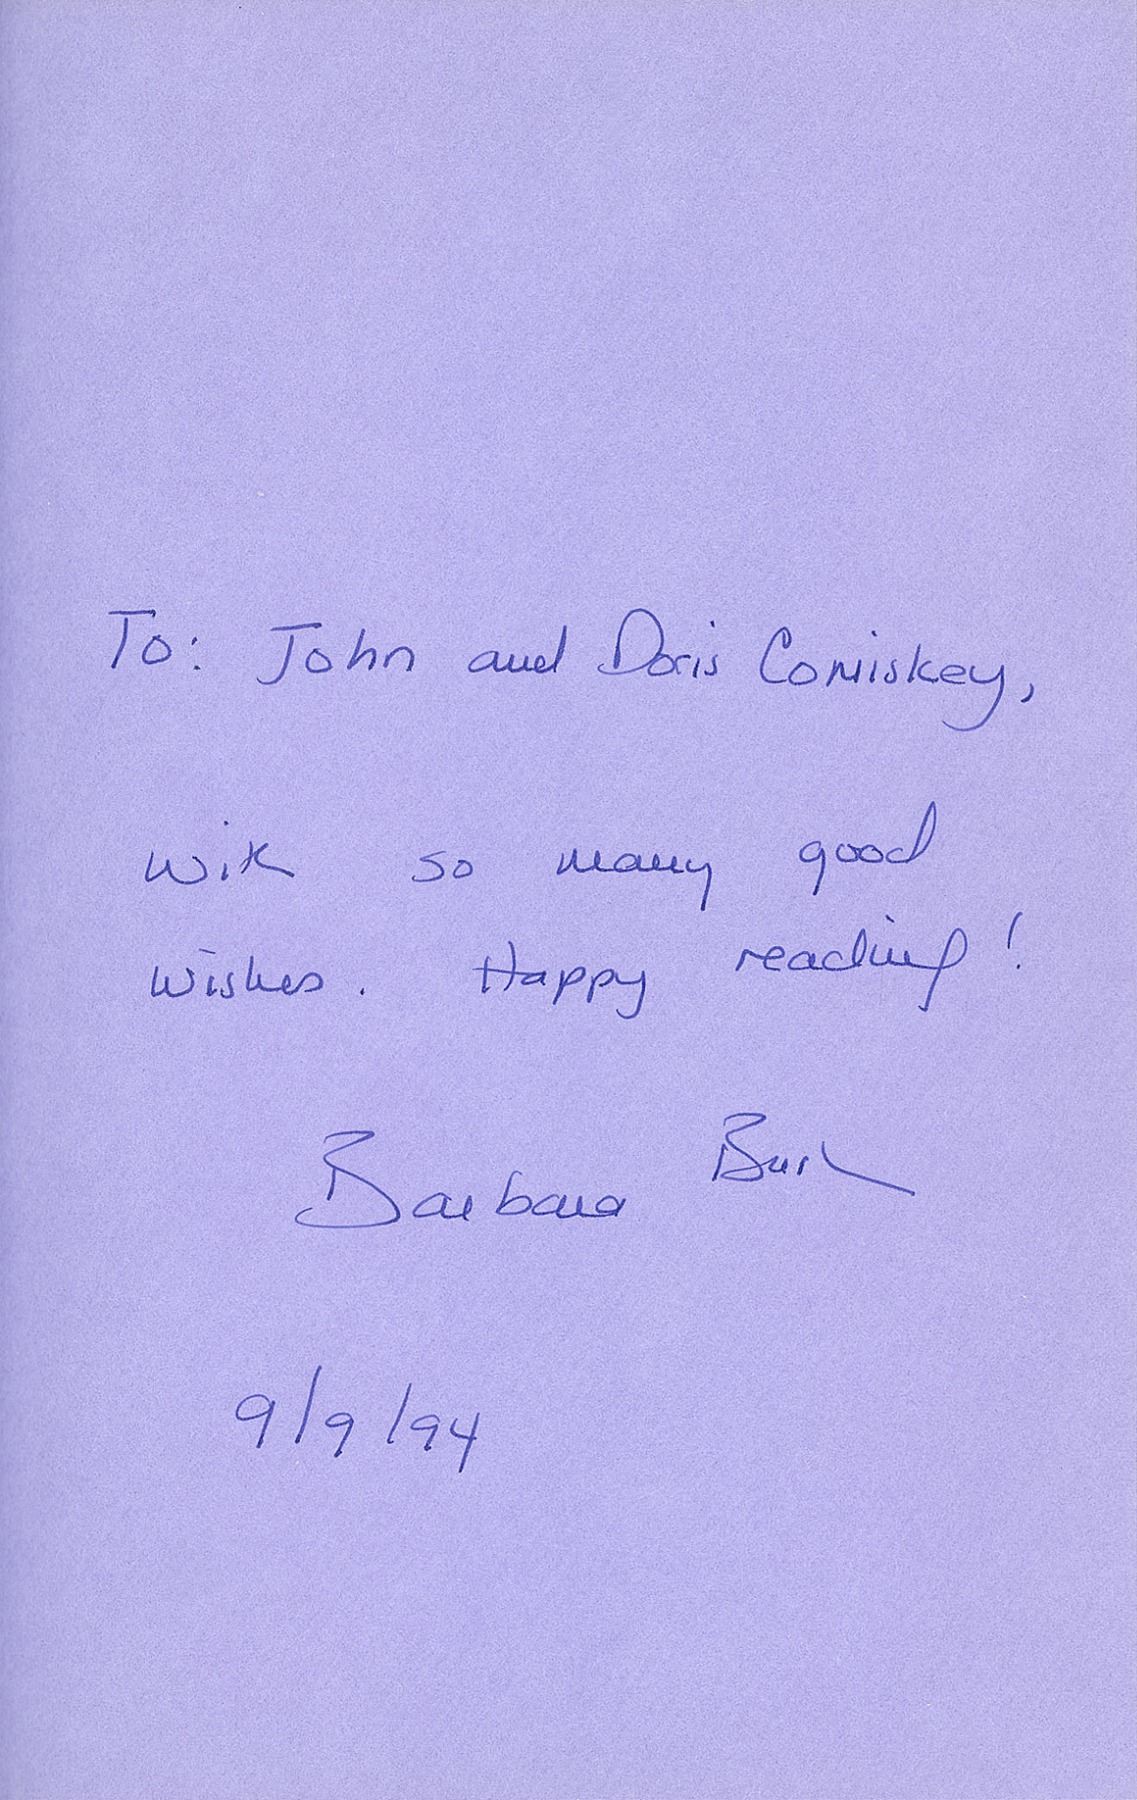 To: John and Doris Comiskey,
with so many good
wishes. Happy reading!
Barbara Bush
9/9/94